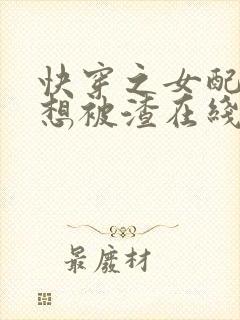 快穿之女配
想被渣在线
最废材